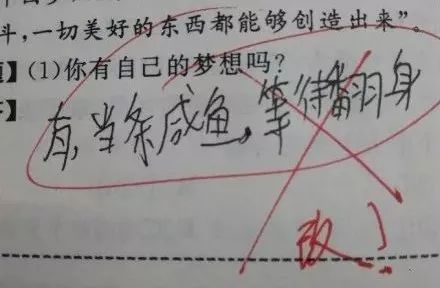 斗,一切美好的东西都能够创造出来”。
】(1)你有自己的梦想吗?
】有,当条咸鱼,等待翻身
改!